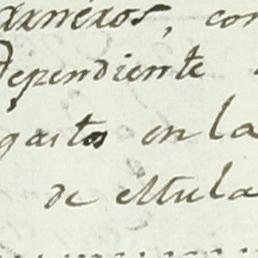 carneros, con
Dependiente
gastos en la
de Mula